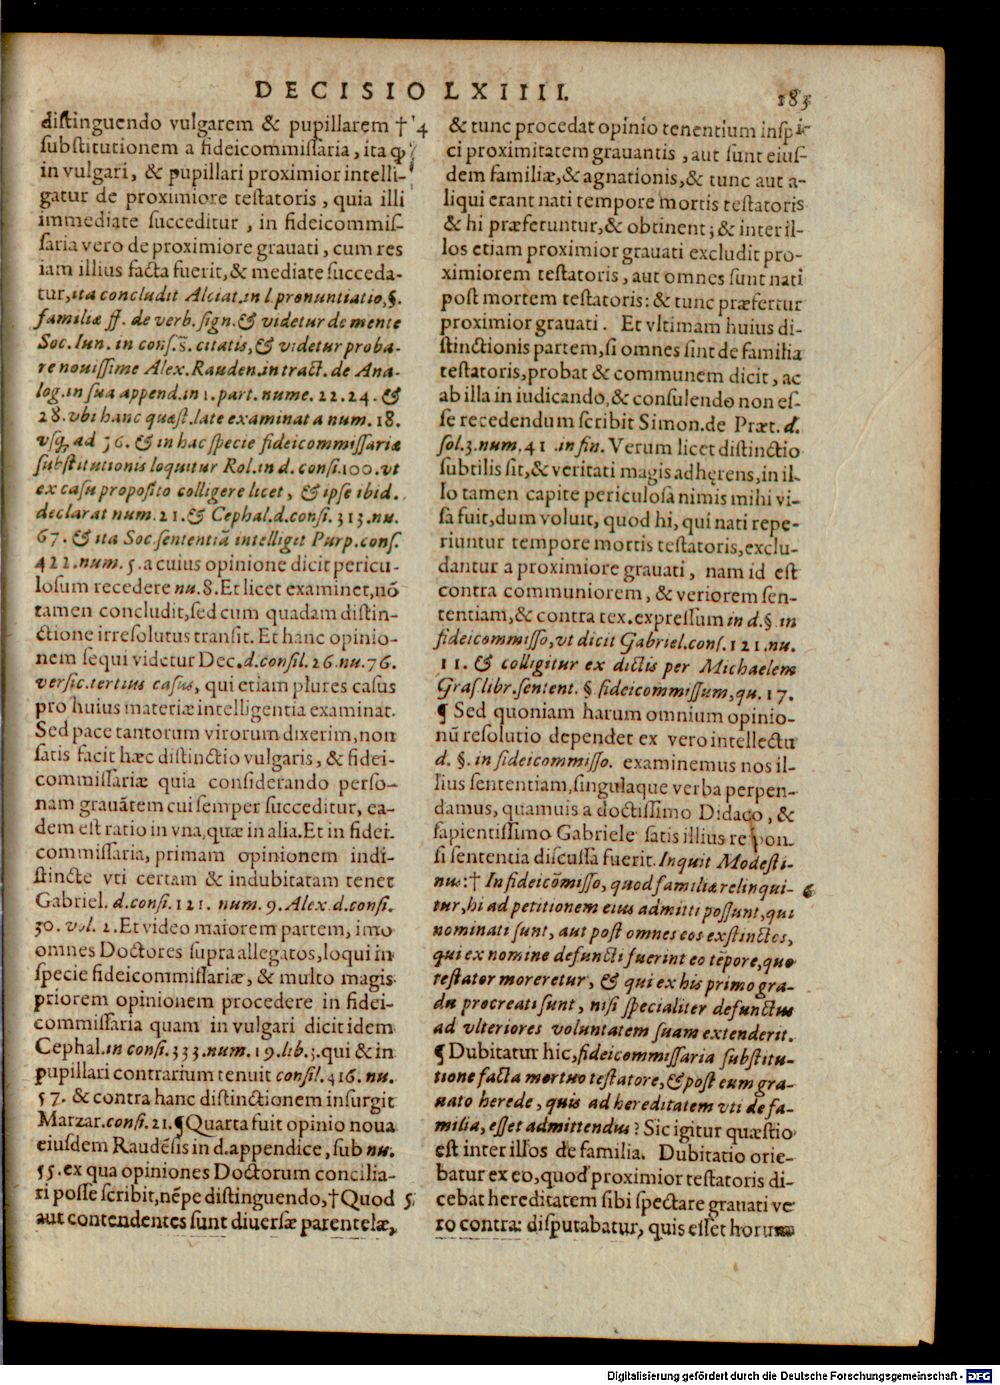 DECISIO LXIIII. 183
distinguendo vulgarem & pupillarem † 4
substitutionem a fideicommissaria, ita ꝙ
in vulgari, & pupillari proximior intelli-
gatur de proximiore testatoris, quia illi
immediate succeditur, in fideicommis-
saria vero de proximiore grauati, cum res
iam illius facta fuerit, & mediate succeda-
tur, ita concludit Alciat. in l. pronuntiatio, §.
familiæ ff. de verb. sign. & videtur de mente
Soc. Iun. in cons. s̄. citatis, & videtur proba-
re nouissime Alex. Rauden. in tract. de Ana-
log. in sua append. in 1. part. nume. 22. 24. &
28. vbi hanc quæst. late examinat a num. 18.
vsq; ad 36. & in hac specie fideicommissariæ
substitutionis loquitur Rol. in d. consi. 100. vt
ex casu proposito colligere licet, & ipse ibid.
declarat num. 21. & Cephal. d. consi. 313. nu.
67. & ita Soc. sententiā intelligit Purp. cons.
422. num. 5. a cuius opinione dicit pericu-
losum recedere nu. 8. Et licet examinet, nō
tamen concludit, sed cum quadam distin-
ctione irresolutus transit. Et hanc opinio-
nem sequi videtur Dec. d. consil. 26. nu. 76.
versic. tertius casus, qui etiam plures casus
pro huius materiæ intelligentia examinat.
Sed pace tantorum virorum dixerim, non
satis facit hæc distinctio vulgaris, & fidei-
commissariæ quia considerando perso-
nam grauātem cui semper succeditur, ea-
dem est ratio in vna, quæ in alia. Et in fidei-
commissaria, primam opinionem indi-
stincte vti certam & indubitatam tenet
Gabriel. d. consi. 121. num. 9. Alex. d. consi.
30. vol. 1. Et video maiorem partem, imo
omnes Doctores supra allegatos, loqui in
specie fideicommissariæ, & multo magis
priorem opinionem procedere in fidei-
commissaria quam in vulgari dicit idem
Cephal. in consi. 333. num. 19. lib. 3. qui & in
pupillari contrarium tenuit consil. 416. nu.
57. & contra hanc distinctionem insurgit
Marzar. consi. 21. ¶ Quarta fuit opinio noua
eiusdem Raudēsis in d. appendice, sub nu.
55. ex qua opiniones Doctorum concilia-
ri posse scribit, nēpe distinguendo, † Quod 5
aut contendentes sunt diuersæ parentelæ,
& tunc procedat opinio tenentium inspi-
ci proximitatem grauantis, aut sunt eius-
dem familiæ, & agnationis, & tunc aut a-
liqui erant nati tempore mortis testatoris
& hi præferuntur, & obtinent; & inter il-
los etiam proximior grauati excludit pro-
ximiorem testatoris, aut omnes sunt nati
post mortem testatoris: & tunc præfertur
proximior grauati. Et vltimam huius di-
stinctionis partem, si omnes sint de familia
testatoris, probat & communem dicit, ac
ab illa in iudicando, & consulendo non es-
se recedendum scribit Simon. de Præt. d.
sol. 3. num. 41. in fin. Verum licet distinctio
subtilis sit, & veritati magis adhęrens, in il-
lo tamen capite periculosa nimis mihi vi-
sa fuit, dum voluit, quod hi, qui nati repe-
riuntur tempore mortis testatoris, exclu-
dantur a proximiore grauati, nam id est
contra communiorem, & veriorem sen-
tentiam, & contra tex. expressum in d. §. in
fideicommisso, vt dicit Gabriel. cons. 121. nu.
11. & colligitur ex dictis per Michaelem
Gras. libr. sentent. § fideicommissum, qu. 17.
¶ Sed quoniam harum omnium opinio-
nū resolutio dependet ex vero intellectu
d. §. in fideicommisso. examinemus nos il-
lius sententiam, singulaque verba perpen-
damus, quamuis a doctissimo Didaco, &
sapientissimo Gabriele satis illius respon-
si sententia discussa fuerit. Inquit Modesti-
nus: † In fideicōmisso, quod familiæ relinqui- 6
tur, hi ad petitionem eius admitti possunt, qui
nominati sunt, aut post omnes eos exstinctos,
qui ex nomine defuncti fuerint eo tēpore, quo
testator moreretur, & qui ex his primo gra-
du procreati sunt, nisi specialiter defunctus
ad vlteriores voluntatem suam extenderit.
¶ Dubitatur hic, fideicommissaria substitu-
tione facta mortuo testatore, & post eum gra-
uato herede, quis ad hereditatem vti de fa-
milia, esset admittendus? Sic igitur quæstio
est inter illos de familia. Dubitatio orie-
batur ex eo, quod proximior testatoris di-
cebat hereditatem sibi spectare grauati ve
ro contra: disputabatur, quis esset horum
Digitalisierung gefördert durch die Deutsche Forschungsgemeinschaft - DFG